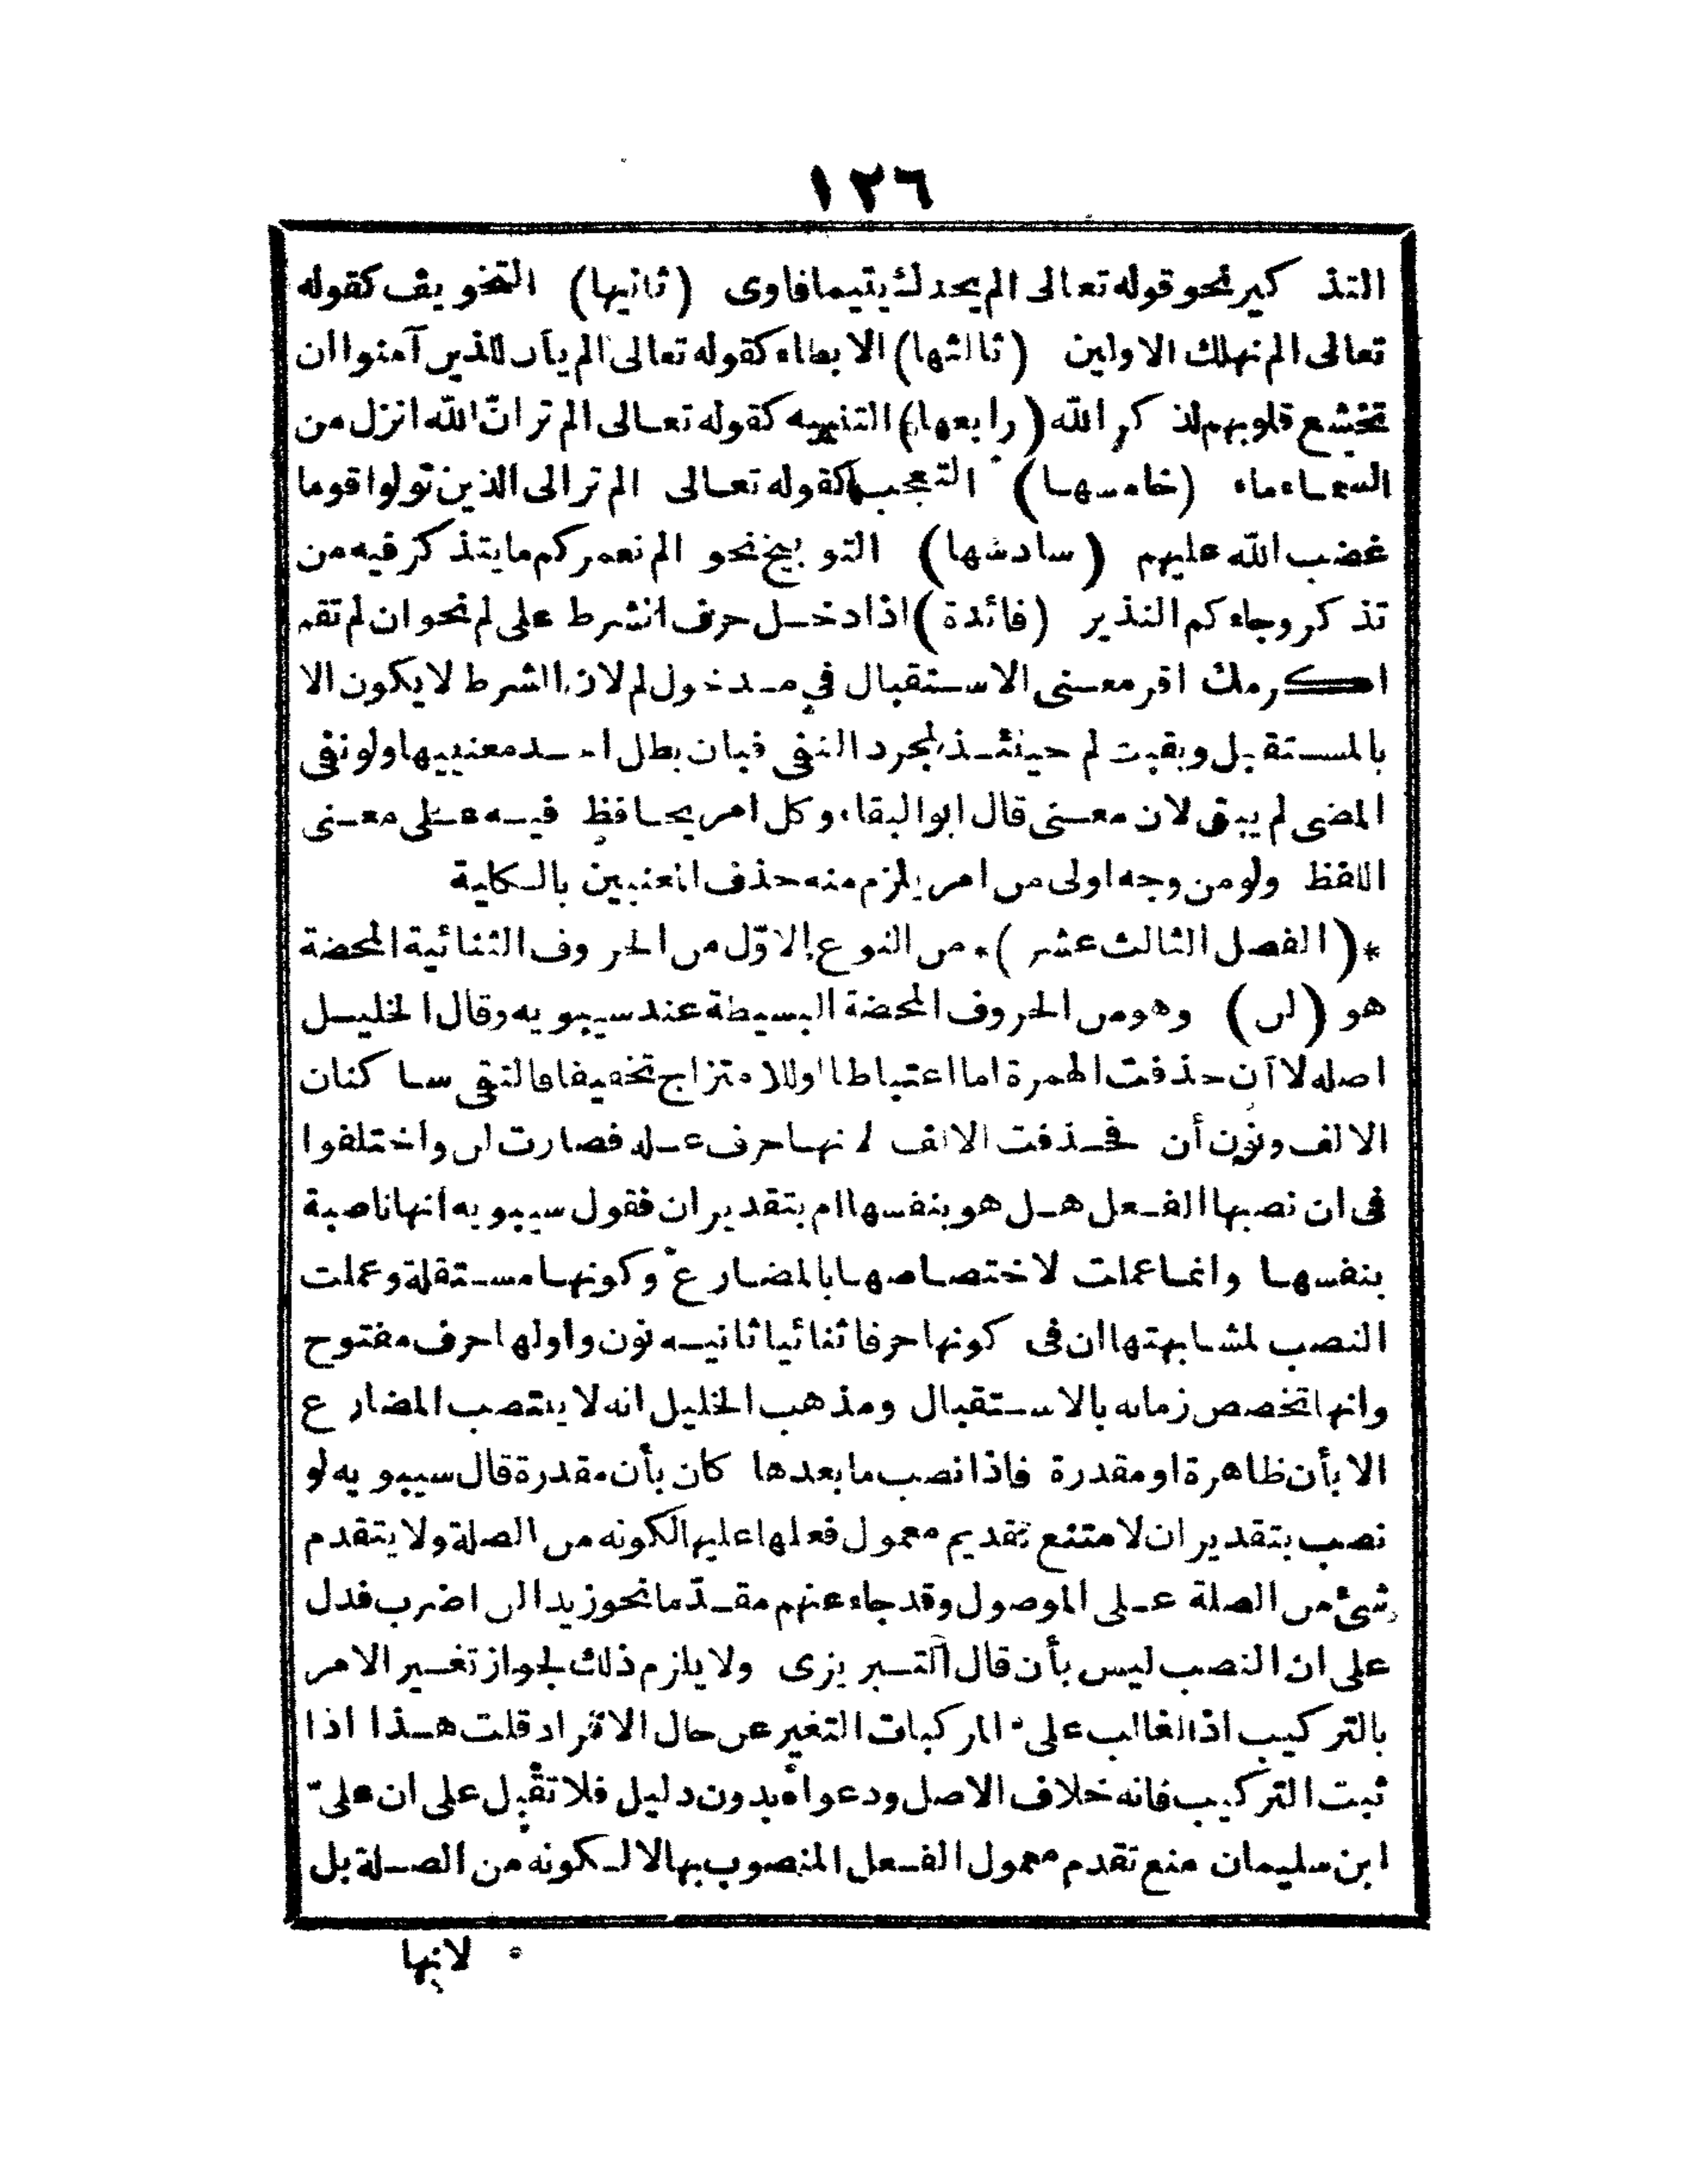 ١٢٦
التذكير نحو قوله تعالى الم يجدك يتيما فاوى (ثانيها) التخويف كقوله
تعالى الم نهلك الاولين (ثالثها) الابطاء كقوله تعالى الم يأن للذين آمنوا ان
تخشع قلوبهم لذكر الله (رابعها) التنبيه كقوله تعالى الم تر انّ الله انزل من
السماء ماء (خامسها) التعجب كقوله تعالى الم تر الى الذين تولوا قوما
غضب الله عليهم (سادسها) التوبيخ نحو الم نعمركم ما يتذكر فيه من
تذكر وجاءكم النذير (فائدة) اذا دخل حرف الشرط على لم نحو ان لم تقم
اكرمك اقر معنى الاستقبال في مدخول لم لان الشرط لا يكون الا
بالمستقبل وبقيت لم حينئذ لمجرد النفى فبان بطل احد معنييها ولو نفى
المضى لم يبق لان معنى قال ابو البقاء وكل امر يحافظ فيه على معنى
اللفظ ولو من وجه اولى من امر يلزم منه حذف المعنيين بالكلية
*(الفصل الثالث عشر)* من النوع الاوّل من الحروف الثنائية المحضة
هو (لن) وهو من الحروف المحضة البسيطة عند سيبويه وقال الخليل
اصله لا آن حذفت الهمزة اما اعتباطا او للامتزاج تخفيفا فالتقى ساكنان
الالف ونون أن فحذفت الالف لانها حرف علة فصارت لن واختلفوا
فى ان نصبها الفعل هل هو بنفسها ام بتقدير ان فقول سيبويه انها ناصبة
بنفسها وانما عملت لاختصاصها بالمضارع وكونها مستقلة وعملت
النصب لمشابهتها ان فى كونها حرفا ثنائيا ثانيه نون واولها حرف مفتوح
وانها تخصص زمانه بالاستقبال ومذهب الخليل انه لا ينتصب المضارع
الا بأن ظاهرة او مقدرة فاذا نصب ما بعدها كان بأن مقدرة قال سيبويه لو
نصب بتقدير ان لامتنع تقديم معمول فعلها عليها لكونه من الصلة ولا يتقدم
شئ من الصلة على الموصول وقد جاء عنهم مقدّما نحو زيدا لن اضرب فدل
على ان النصب ليس بأن قال التبريزى ولا يلزم ذلك لجواز تغيير الامر
بالتركيب اذ الغالب على المركبات التغير عن حال الافراد قلت هذا اذا
ثبت التركيب فانه خلاف الاصل ودعواه بدون دليل فلا تقبل على ان علىّ
ابن سليمان منع تقدم معمول الفعل المنصوب بها لا لكونه من الصلة بل
لانها